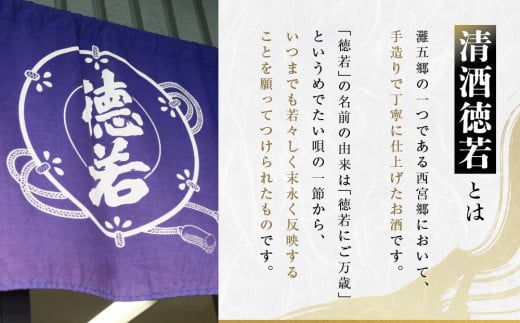 清酒徳若とは
灘五郷の一つである西宮郷において、
手造りで丁寧に仕上げたお酒です。
「徳若」の名前の由来は「徳若にご万歳」
というめでたい唄の一節から、
いつまでも若々しく末永く反映する
ことを願ってつけられたものです。
徳若